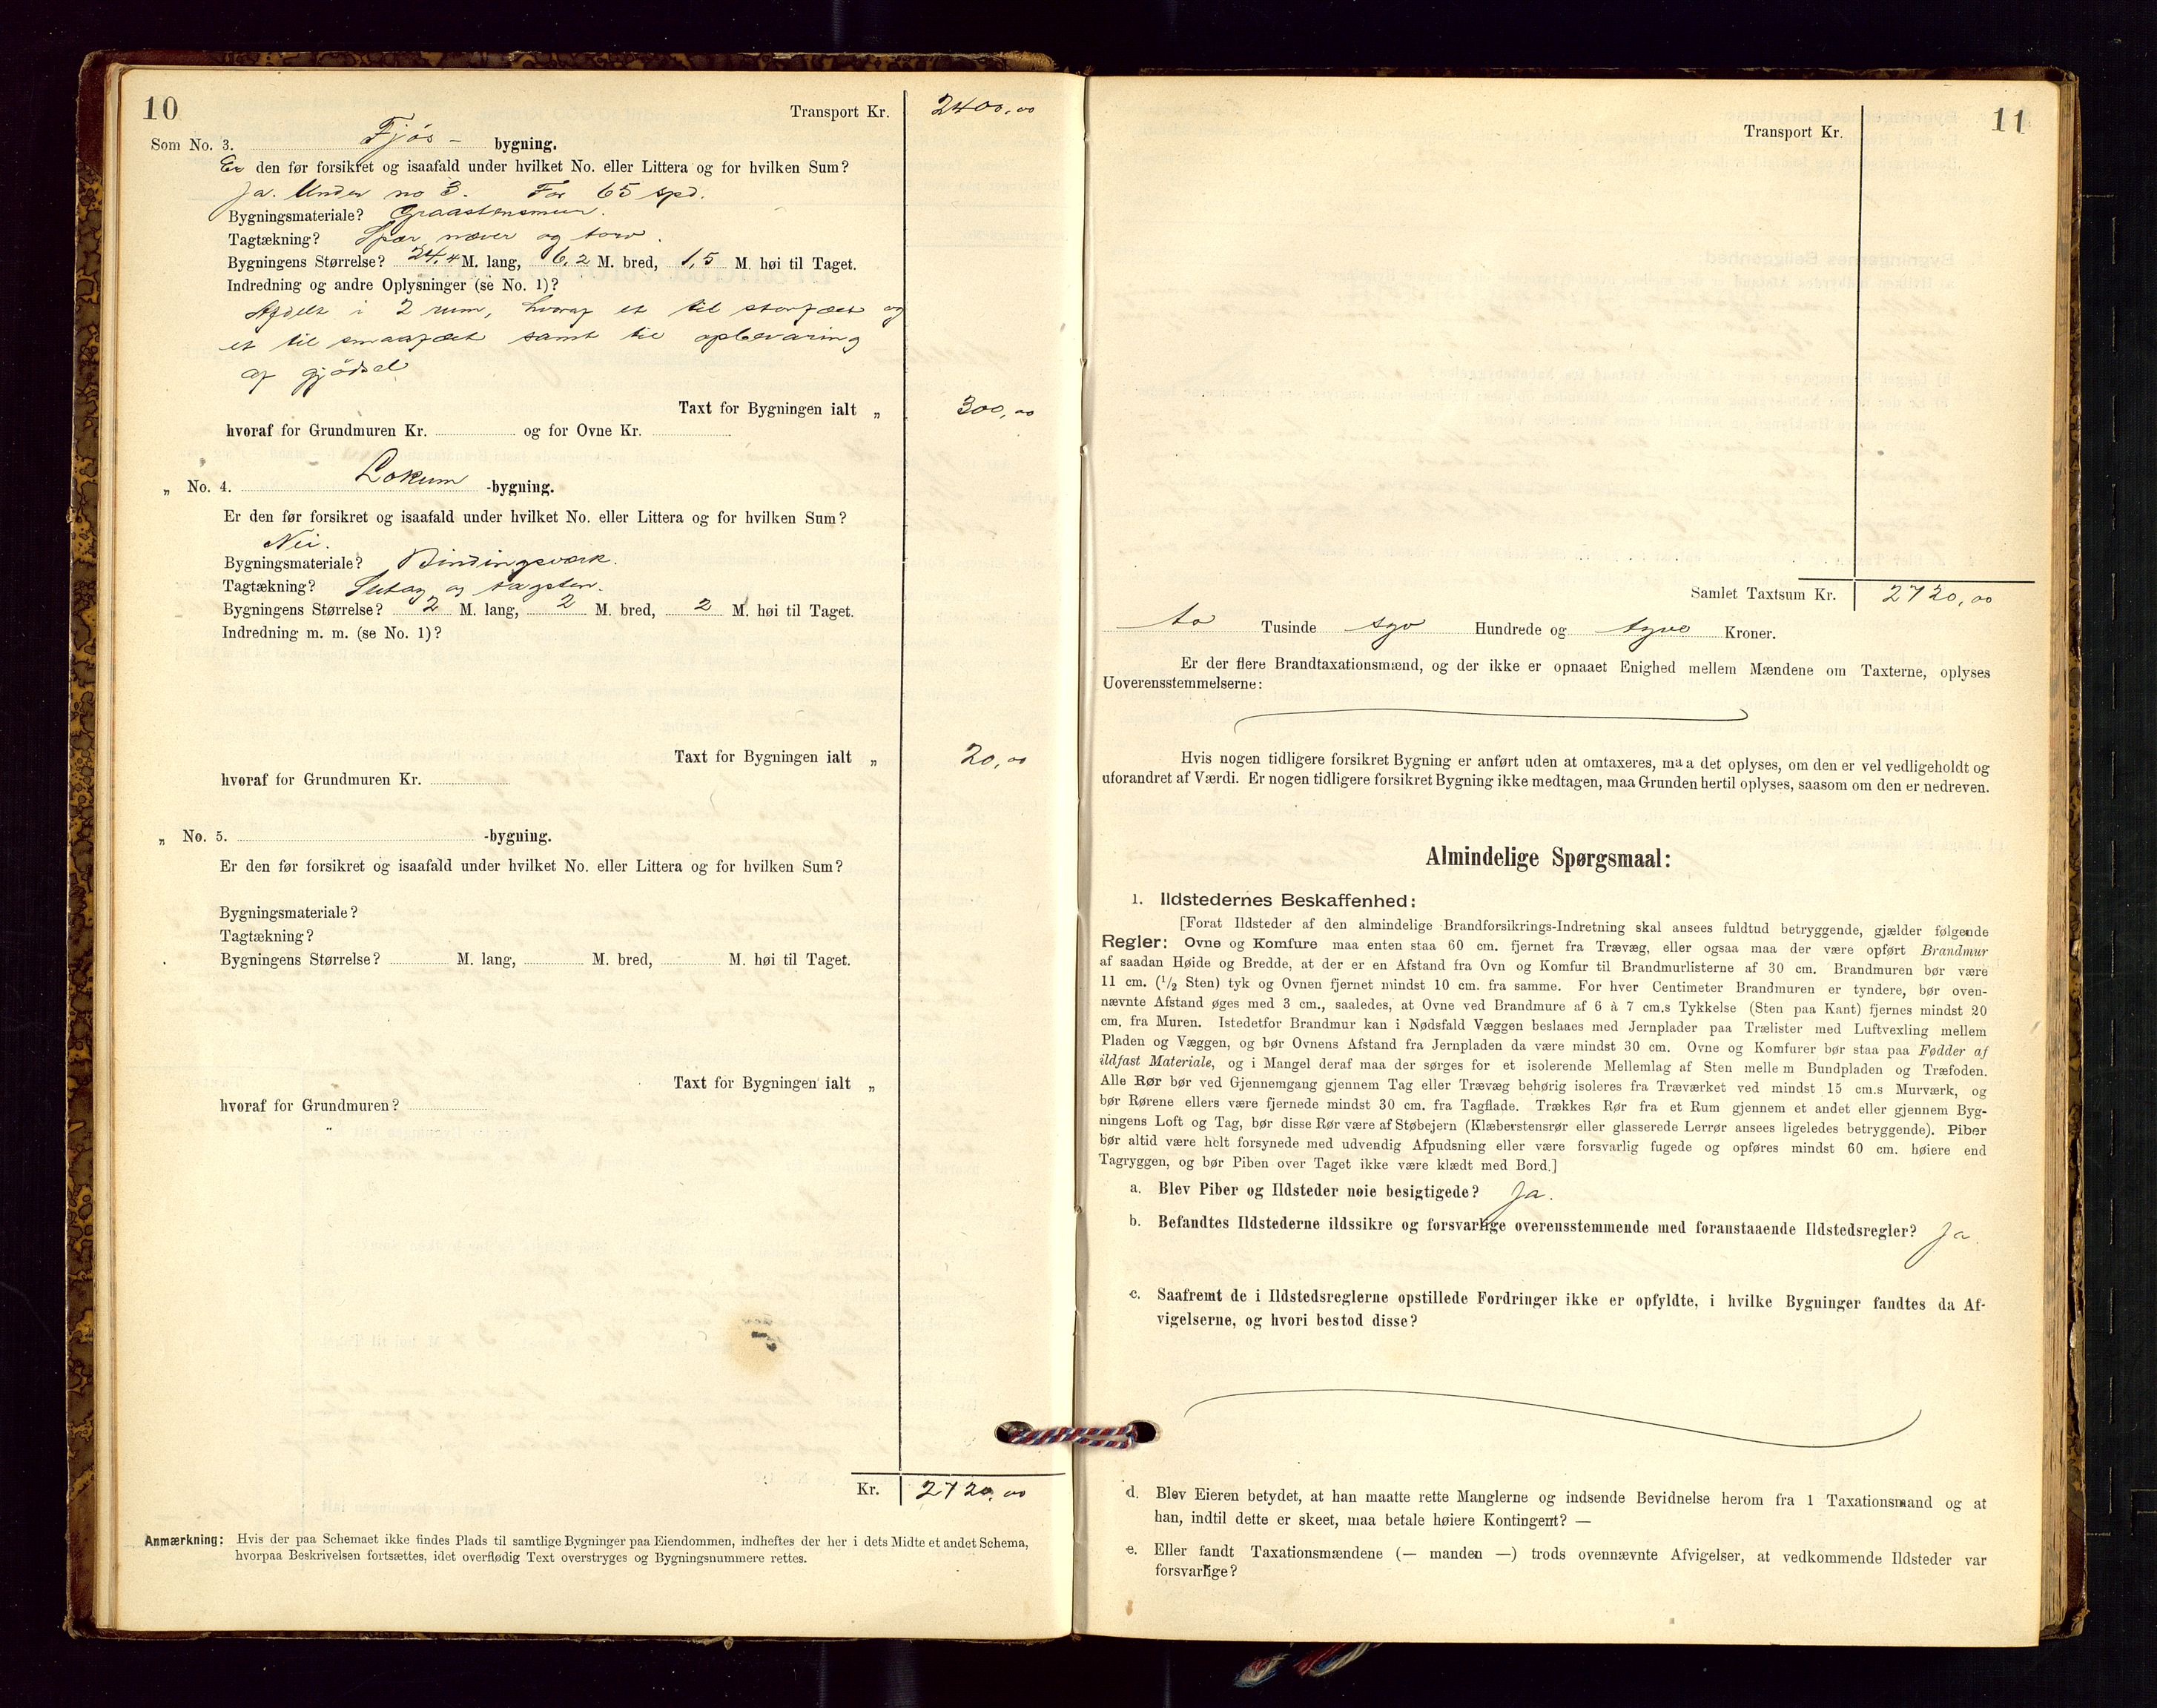 10
Transport Kr. 2400,00
Som No. 3. Fjøs- bygning.
Er den før forsikret og isaafald under hvilket No. eller Littera og for hvilken Sum?
Ja. Under no 3. For 65 spd.
Bygningsmateriale? Graastensmur.
Tagtækning? Spær, næver og torv.
Bygningens Størrelse? 24,4 M. lang, 6,2 M. bred, 1,5 M. høi til Taget.
Indredning og andre Oplysninger (se No. 1)?
Afdelt i 2 rum, hvoraf et til storfæet og
et til smaafæet samt til opbevaring
af gjødsel
Taxt for Bygningen ialt „ 300,00
hvoraf for Grundmuren Kr. og for Ovne Kr.
„ No. 4. Lokum -bygning.
Er den før forsikret og isaafald under hvilket No. eller Littera og for hvilken Sum?
Nei.
Bygningsmateriale? Bindingsværk.
Tagtækning? Sutag og tagsten.
Bygningens Størrelse? 2 M. lang, 2 M. bred, 2 M. høi til Taget.
Indredning m. m. (se No. 1)?
Taxt for Bygningen ialt „ 20,00
hvoraf for Grundmuren Kr.
„ No. 5. -bygning.
Er den før forsikret og isaafald under hvilket No. eller Littera og for hvilken Sum?
Bygningsmateriale?
Tagtækning?
Bygningens Størrelse? M. lang, M. bred, M. høi til Taget.
Taxt for Bygningen ialt „
hvoraf for Grundmuren?
Kr. 2720,00
Anmærkning: Hvis der paa Schemaet ikke findes Plads til samtlige Bygninger paa Eiendommen, indheftes der her i dets Midte et andet Schema,
hvorpaa Beskrivelsen fortsættes, idet overflødig Text overstryges og Bygningsnummere rettes.
11
Transport Kr.
Samlet Taxtsum Kr. 2720,00
to Tusinde syv Hundrede og tyve Kroner.
Er der flere Brandtaxationsmænd, og der ikke er opnaaet Enighed mellem Mændene om Taxterne, oplyses
Uoverensstemmelserne:
Hvis nogen tidligere forsikret Bygning er anført uden at omtaxeres, maa det oplyses, om den er vel vedligeholdt og
uforandret af Værdi. Er nogen tidligere forsikret Bygning ikke medtagen, maa Grunden hertil oplyses, saasom om den er nedreven.
Almindelige Spørgsmaal:
1. Ildstedernes Beskaffenhed:
[Forat Ildsteder af den almindelige Brandforsikrings-Indretning skal ansees fuldtud betryggende, gjælder følgende
Regler: Ovne og Komfure maa enten staa 60 cm. fjernet fra Trævæg, eller ogsaa maa der være opført Brandmur
af saadan Høide og Bredde, at der er en Afstand fra Ovn og Komfur til Brandmurlisterne af 30 cm. Brandmuren bør være
11 cm. (1/2 Sten) tyk og Ovnen fjernet mindst 10 cm. fra samme. For hver Centimeter Brandmuren er tyndere, bør oven-
nævnte Afstand øges med 3 cm., saaledes, at Ovne ved Brandmure af 6 à 7 cm.s Tykkelse (Sten paa Kant) fjernes mindst 20
cm. fra Muren. Istedetfor Brandmur kan i Nødsfald Væggen beslaaes med Jernplader paa Trælister med Luftvexling mellem
Pladen og Væggen, og bør Ovnens Afstand fra Jernpladen da være mindst 30 cm. Ovne og Komfurer bør staa paa Fødder af
ildfast Materiale, og i Mangel deraf maa der sørges for et isolerende Mellemlag af Sten mellem Bundpladen og Træfoden.
Alle Rør bør ved Gjennemgang gjennem Tag eller Trævæg behørig isoleres fra Træværket ved mindst 15 cm.s Murværk, og
bør Rørene ellers være fjernede mindst 30 cm. fra Tagflade. Trækkes Rør fra et Rum gjennem et andet eller gjennem Byg-
ningens Loft og Tag, bør disse Rør være af Støbejern (Klæberstensrør eller glasserede Lerrør ansees ligeledes betryggende). Piber
bør altid være helt forsynede med udvendig Afpudsning eller være forsvarlig fugede og opføres mindst 60 cm. høiere end
Tagryggen, og bør Piben over Taget ikke være klædt med Bord.]
a. Blev Piber og Ildsteder nøie besigtigede? Ja.
b. Befandtes Ildstederne ildssikre og forsvarlige overensstemmende med foranstaaende Ildstedsregler? Ja.
c. Saafremt de i Ildstedsreglerne opstillede Fordringer ikke er opfyldte, i hvilke Bygninger fandtes da Af-
vigelserne, og hvori bestod disse?
d. Blev Eieren betydet, at han maatte rette Manglerne og indsende Bevidnelse herom fra 1 Taxationsmand og at
han, indtil dette er skeet, maa betale høiere Kontingent? —
e. Eller fandt Taxationsmændene (— manden —) trods ovennævnte Afvigelser, at vedkommende Ildsteder var
forsvarlige?